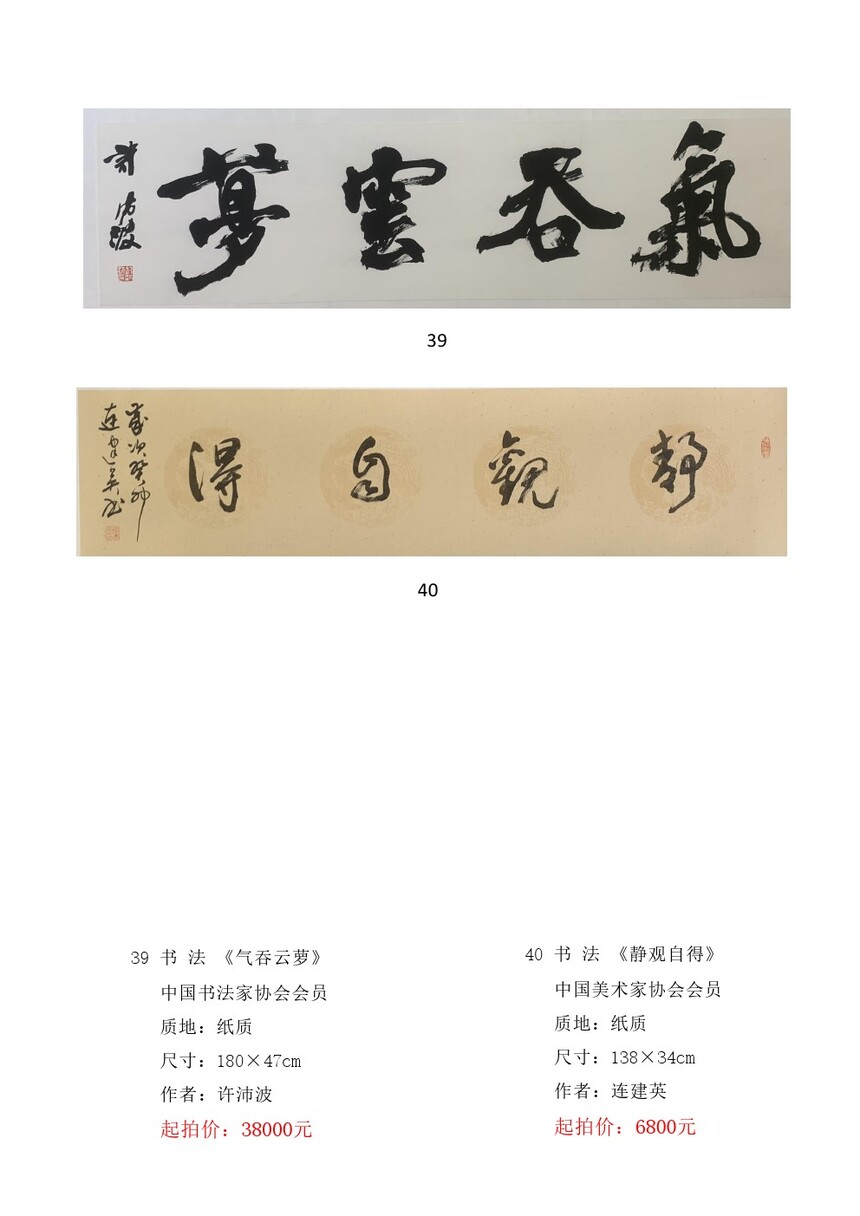 氣吞雲夢
許沛波
39
靜觀自得
歲次癸卯
連建英书
40
39 书 法 《气吞云萝》
中国书法家协会会员
质地：纸质
尺寸：180×47cm
作者：许沛波
起拍价：38000元
40 书 法 《静观自得》
中国美术家协会会员
质地：纸质
尺寸：138×34cm
作者：连建英
起拍价：6800元